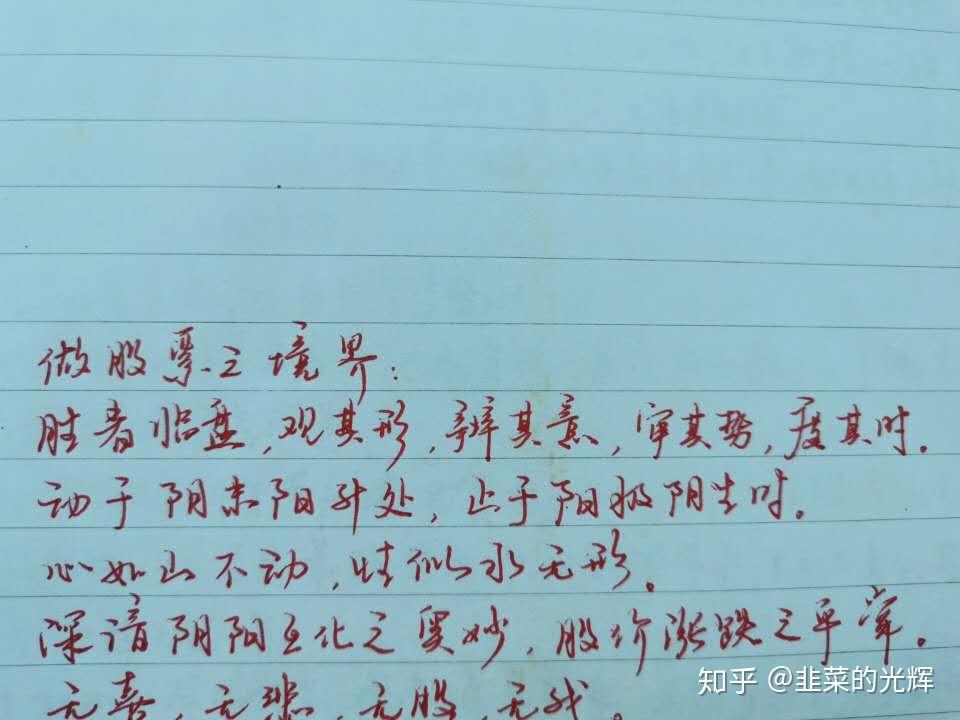 做股票之境界：
胜者临盘，观其形，辨其意，审其势，度其时。
动于阴末阳升处，止于阳极阴生时。
心如山不动，性似水无形。
深谙阴阳互化之奥妙，股价涨跌之平常。
无喜，无悲，无股，无我。
知乎 @韭菜的光辉